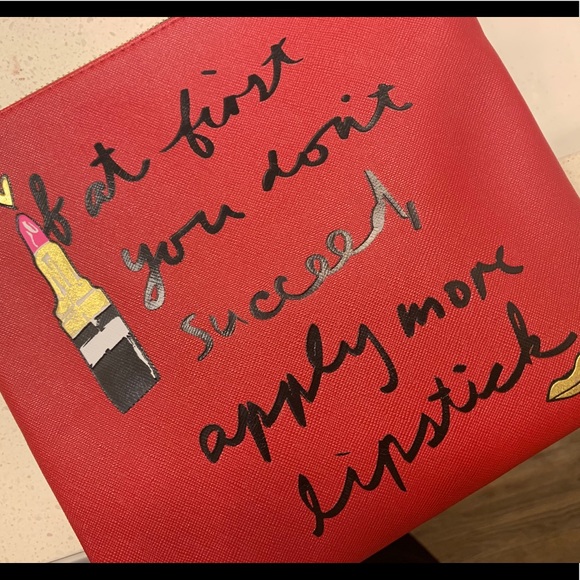 If at first
you don't
succeed,
apply more
lipstick